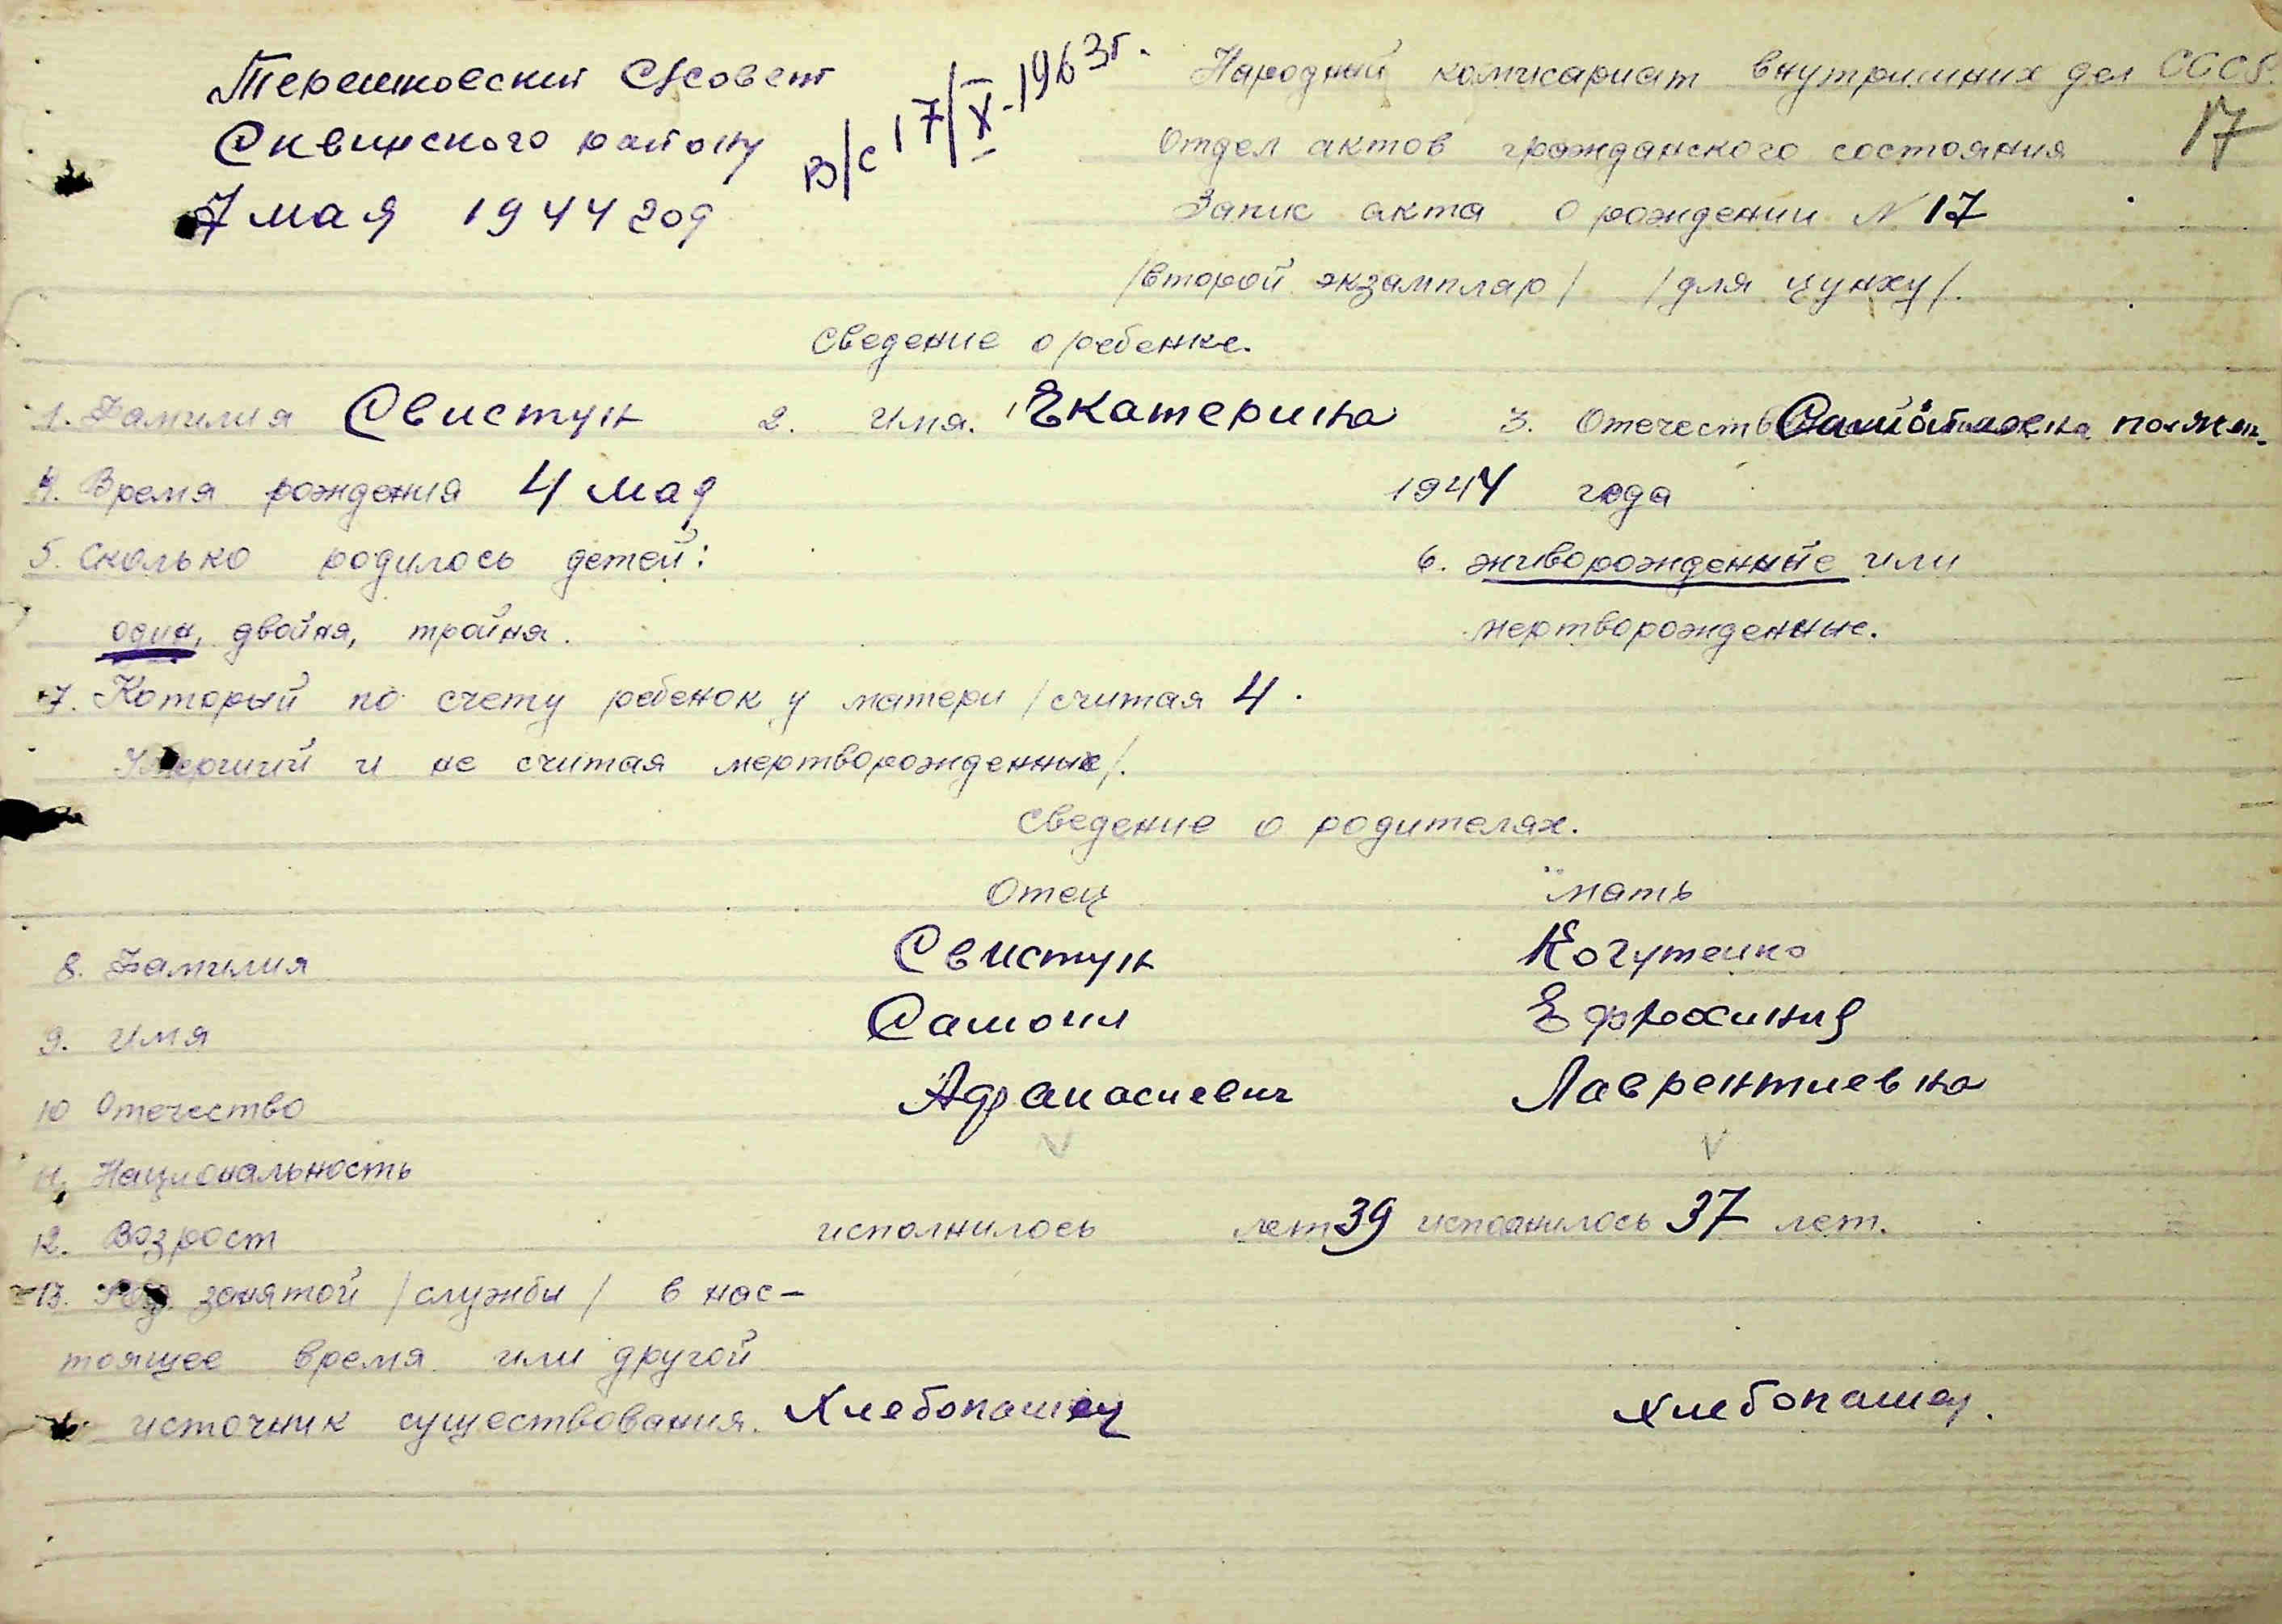 Терешковский С/совет
Сквирского району
7 мая 1944 год
в/с 17/X-1963г.
Народный комисариат внутришних дел СССР.
17
Отдел актов гражданского состояния
Запис акта о рождении N 17
/второй экзамплар/ /для цунху/.
Сведение о ребенке.
1. Фамилия Свистун 2. Имя. Екатерина 3. Отечество
4. Время рождения 4 мая 1944 года
5. Сколько родилось детей: 6. живорожденные или
один, двойня, тройня. мертворожденные.
7. Который по счету ребенок у матери /считая 4.
Умерший и не считая мертворожденных/.
Сведение о родителях.
Отец мать
8. Фамилия Свистун Когутенко
9. Имя Самоил Ефросиния
10 Отечество Афанасиевич Лаврентиевна
11. Национальность
12. Возрост исполнилось лет 39 исполнилось 37 лет.
13. Род занятой /службы/ в нас-
тоящее время или другой
источник существования. Хлебопашец хлебопашец.